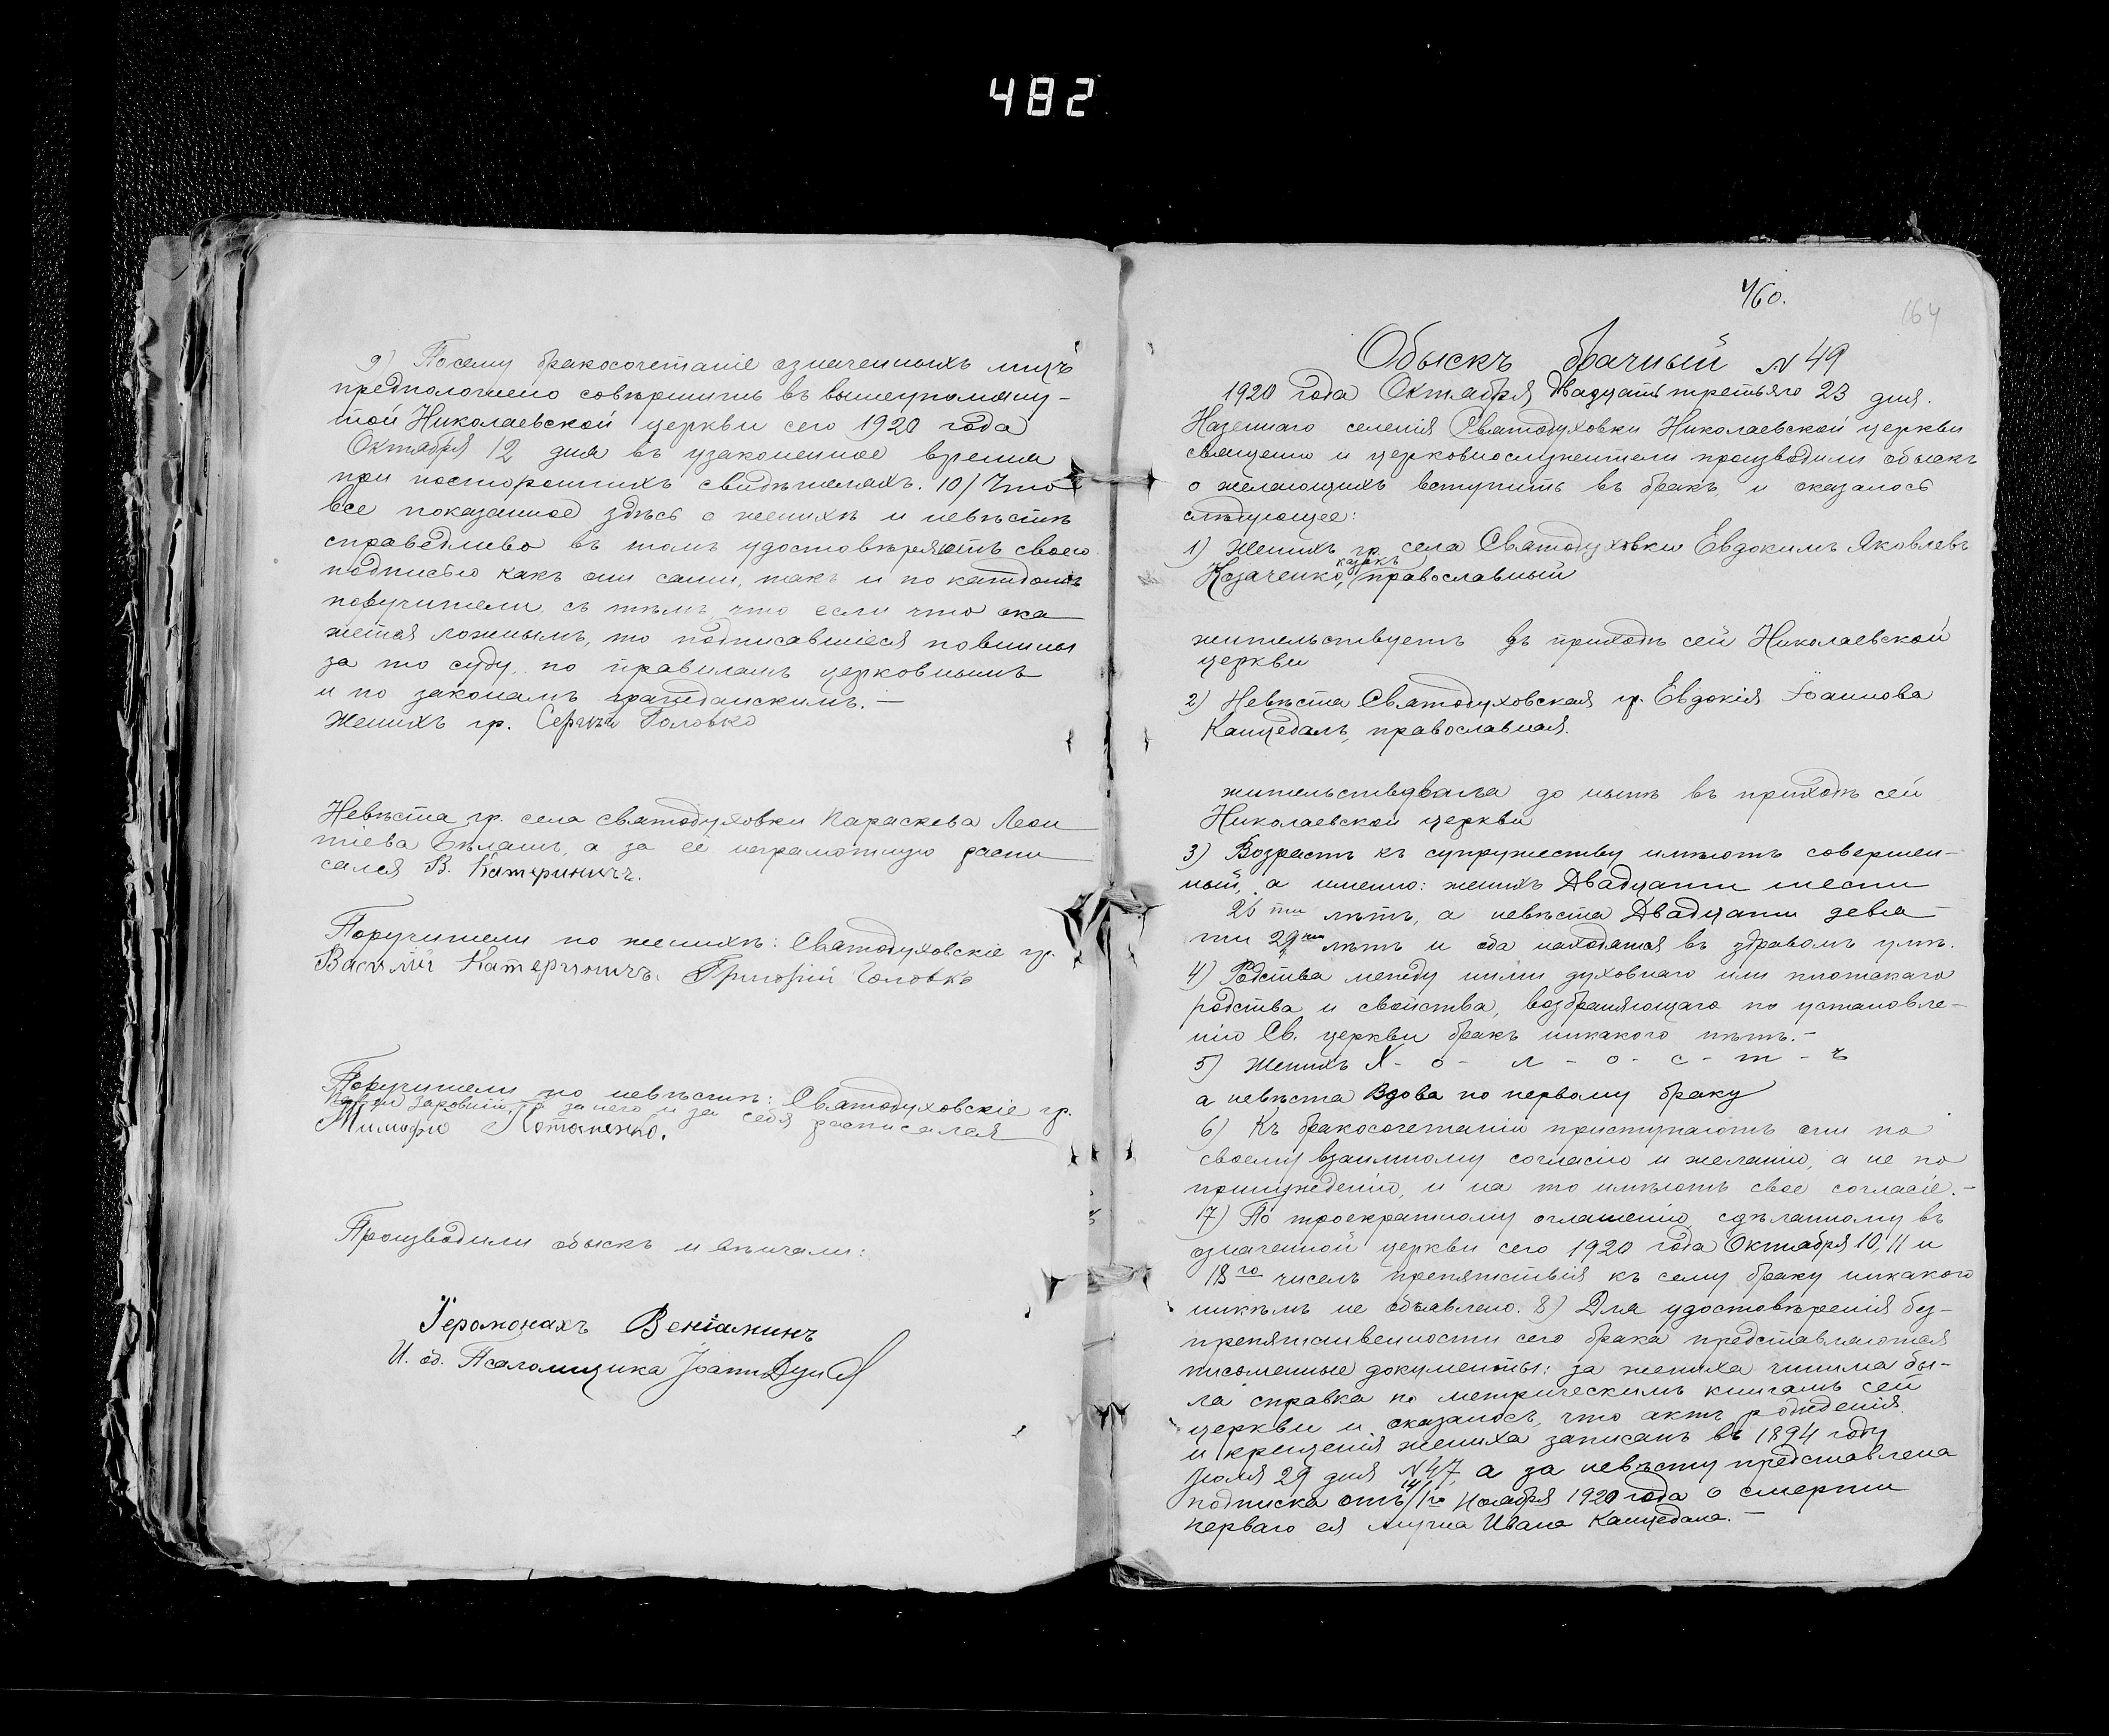 482
9) Посему бракосочетаніе означенныхъ лицъ
предположено совершить въ вышеупомяну-
той Николаевской церкви сего 1920 года
Октября 12 дня въ узаконенное время
при постороннихъ свидѣтеляхъ. 10) Что
все показанное здѣсь о женихѣ и невѣстѣ
справедливо въ томъ удостовѣряютъ своею
подписью какъ они сами, такъ и по каждомъ
поручители, съ тѣмъ, что если что ока
жется ложнымъ, то подписавшіеся повинны
за то суду, по правиламъ церковнымъ
и по законамъ гражданскимъ. –
Женихъ гр. Сергѣй Головко
Невѣста гр. села Святодуховки Параскева Леон
тіева Бѣлашъ, а за ее неграмотную распи
сался В. Катериничъ.
Поручители по женихѣ: Святодуховскіе гр.
Василій Катериничъ. Григорій Головкъ
Поручители по невѣстѣ: Святодуховскіе гр.
за него и за себя расписался
Потапенко.
Производили обыскъ и вѣнчали:
Іеромонахъ Веніаминъ
И. об. Псаломщика Іоаннъ
460.
164
Обыскъ брачный N 49
1920 года Октября Двадцать третьяго 23 дня.
Казеннаго селенія Святодуховки Николаевской церкви
священно и церковнослужители производили обыскъ
о желающихъ вступить въ бракъ, и оказалось
слѣдующее:
1) Женихъ гр. села Святодуховки Евдокимъ Яковлевъ
казакъ
Козаченко, православный
жительствуетъ въ приходѣ сей Николаевской
церкви
2) Невѣста Святодуховская гр. Евдокія Іоаннова
Канцедалъ, православная.
жительствовала до нынѣ въ приходѣ сей
Николаевской церкви
3) Возрастъ къ супружеству имѣютъ совершен-
ный, а именно: женихъ Двадцати шести
26 ти лѣтъ, а невѣста Двадцати девя
ти 29 ти лѣтъ и оба находятся въ здравомъ умѣ.
4) Родства между ними духовнаго или плотскаго
родства и свойства, возбраняющаго по установле-
нію Св. церкви бракъ никакого нѣтъ. –
5) Женихъ Х - о - л - о - с - т - ъ
а невѣста Вдова по первому браку
6) Къ бракосочетанію приступаютъ они по
своему взаимному согласію и желанію, а не по
принужденію, и на то имѣютъ свое согласіе. –
7) По троекратному оглашенію, сдѣланному въ
означенной церкви сего 1920 года Октября 10, 11 и
18 го чиселъ препятствія къ сему браку никакого
никѣмъ не объявлено. 8) Для удостовѣренія без-
препятственности сего брака представляются
письменные документы: за жениха чинима бы-
ла справка по метрическимъ книгамъ сей
церкви и оказалось, что актъ рожденія
и крещенія жениха записанъ въ 1894 году
Іюля 29 дня N 47, а за невѣсту представлена
подписка отъ 14/1го Ноября 1920 года о смерти
перваго ея мужа Ивана Канцедала. –